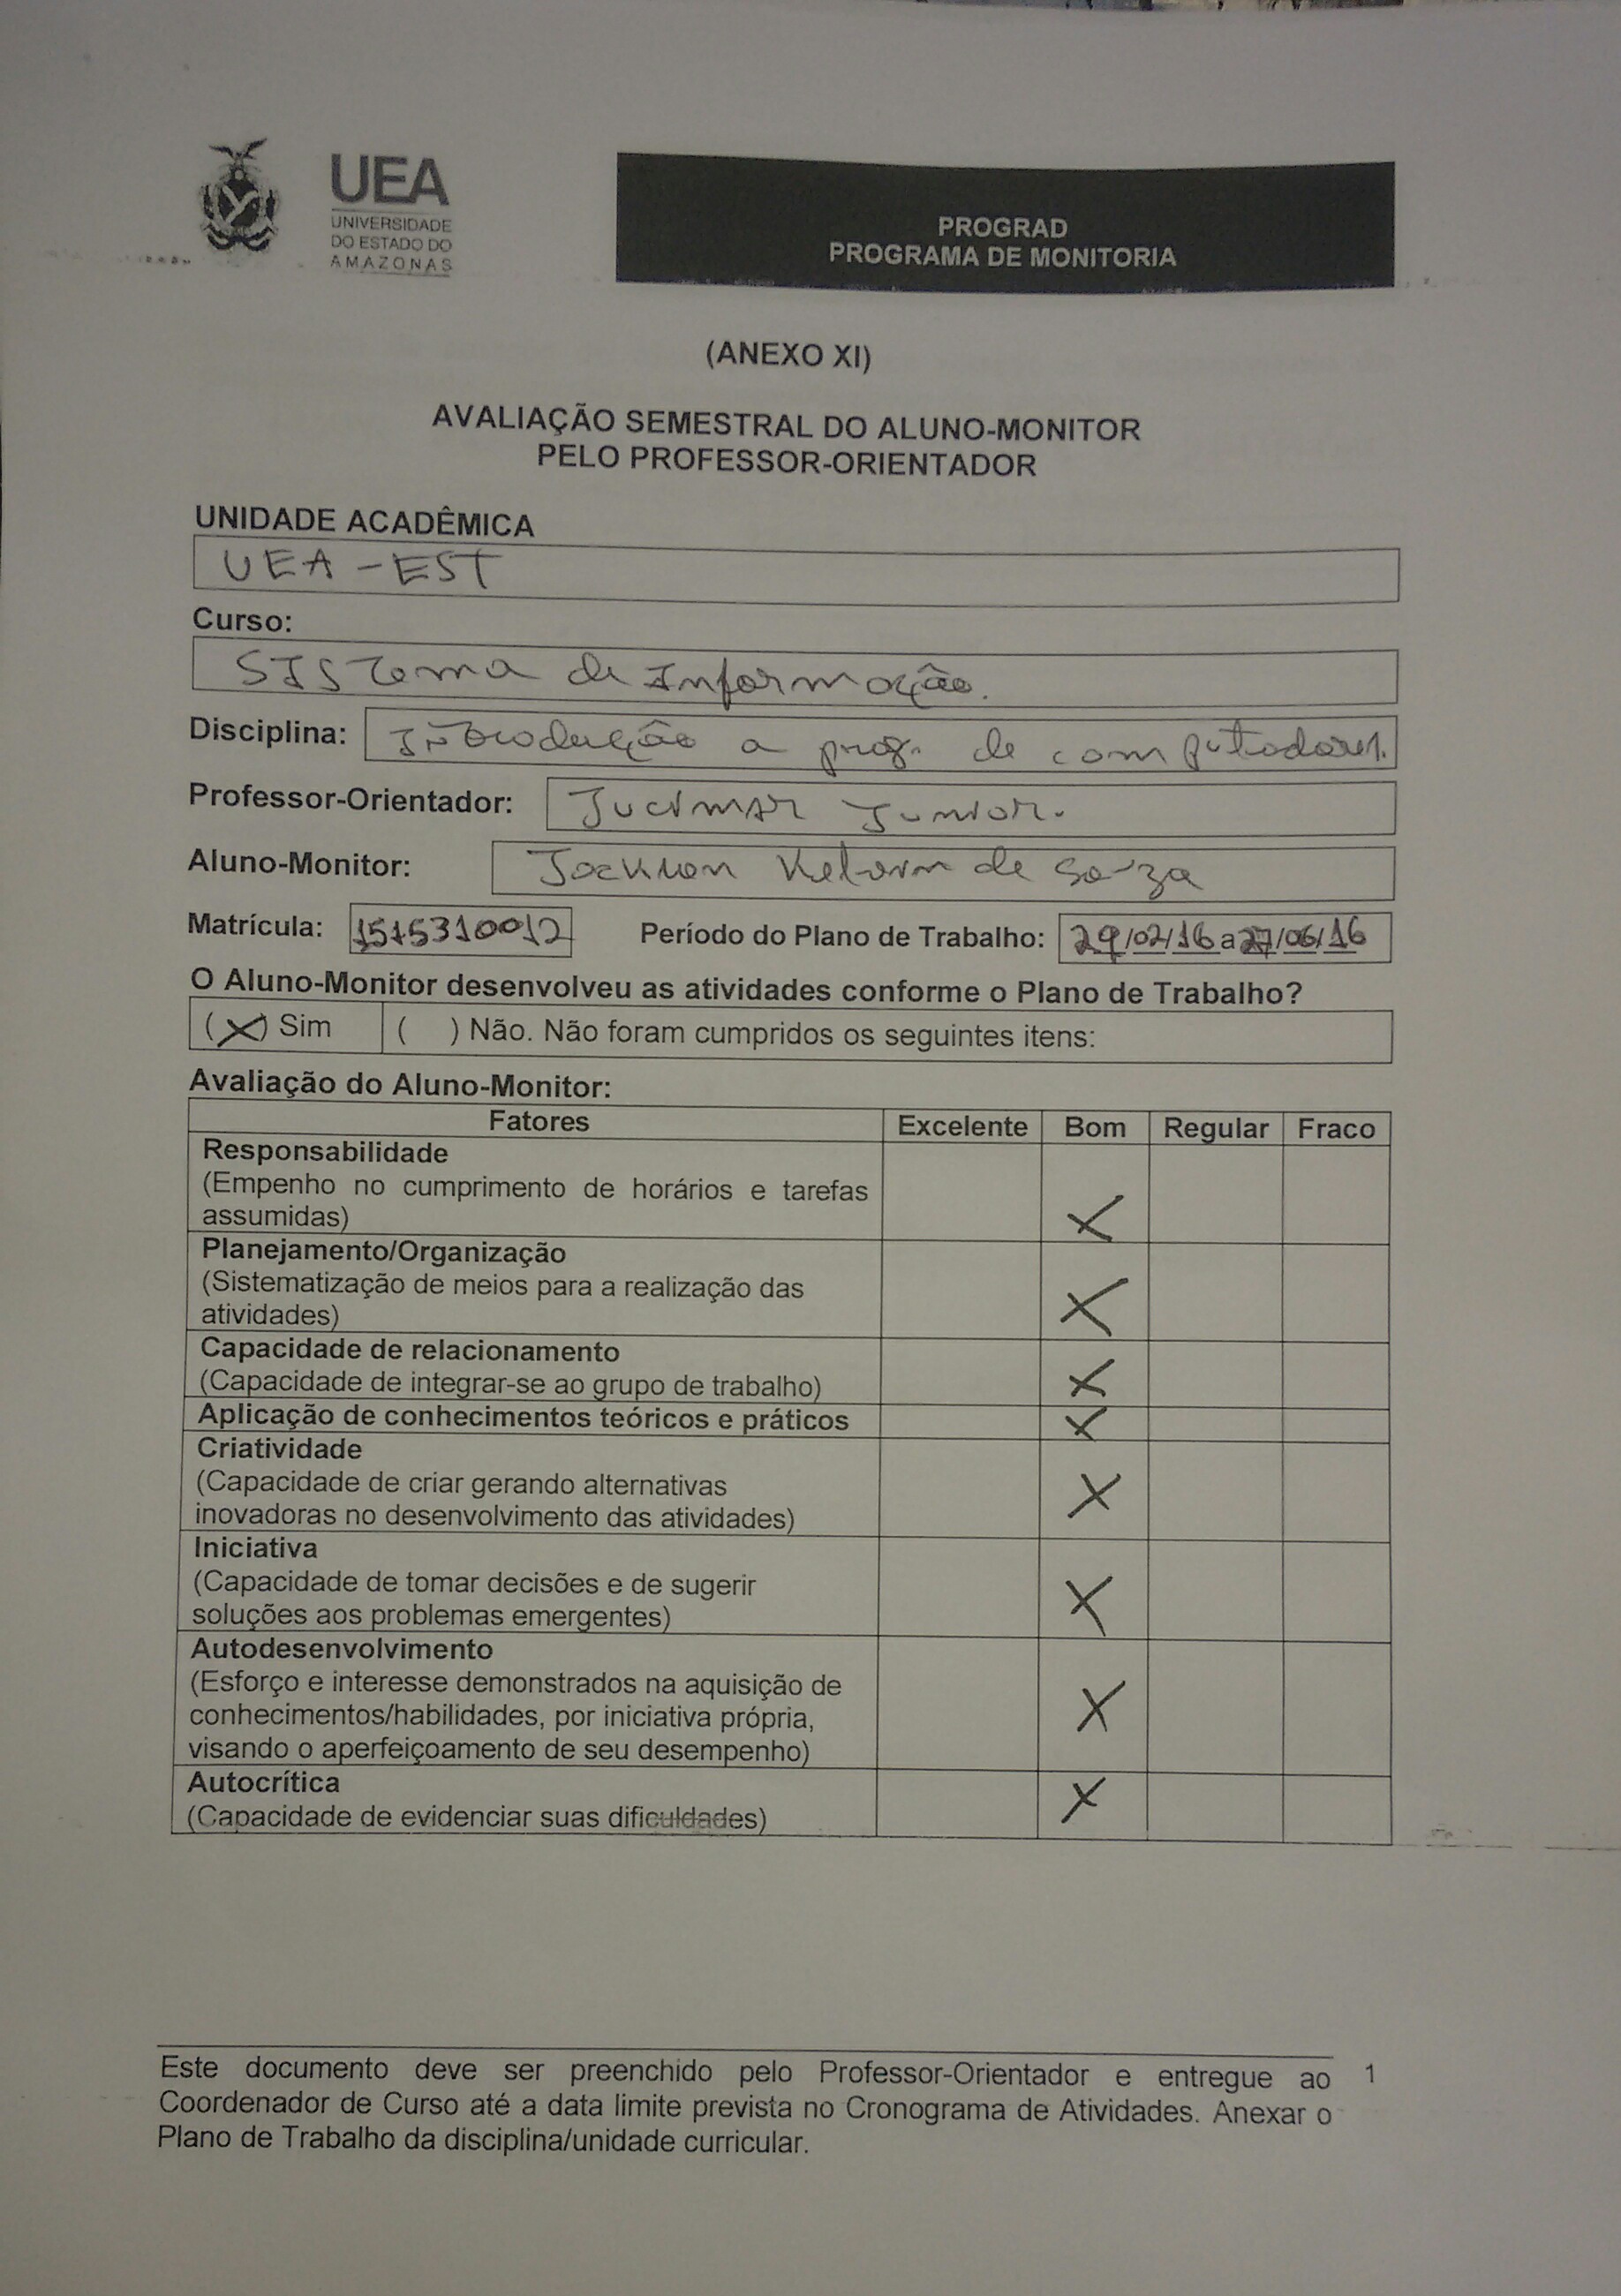 UEA
UNIVERSIDADE
DO ESTADO DO
AMAZONAS
PROGRAD
PROGRAMA DE MONITORIA
(ANEXO XI)
AVALIAÇÃO SEMESTRAL DO ALUNO-MONITOR
PELO PROFESSOR-ORIENTADOR
UNIDADE ACADÊMICA
UEA - EST
Curso:
SISTema de Informação.
Disciplina: Introdução a prog. de computadores.
Professor-Orientador: Jucimar Junior.
Aluno-Monitor: de Souza
Matrícula: 1515310012 Período do Plano de Trabalho: 29/02/16 a 27/06/16
O Aluno-Monitor desenvolveu as atividades conforme o Plano de Trabalho?
(X) Sim ( ) Não. Não foram cumpridos os seguintes itens:
Avaliação do Aluno-Monitor:
Fatores Excelente Bom Regular Fraco
Responsabilidade
(Empenho no cumprimento de horários e tarefas
assumidas) X
Planejamento/Organização
(Sistematização de meios para a realização das
atividades) X
Capacidade de relacionamento
(Capacidade de integrar-se ao grupo de trabalho) X
Aplicação de conhecimentos teóricos e práticos X
Criatividade
(Capacidade de criar gerando alternativas X
inovadoras no desenvolvimento das atividades)
Iniciativa
(Capacidade de tomar decisões e de sugerir X
soluções aos problemas emergentes)
Autodesenvolvimento
(Esforço e interesse demonstrados na aquisição de
conhecimentos/habilidades, por iniciativa própria, X
visando o aperfeiçoamento de seu desempenho)
Autocrítica X
(Capacidade de evidenciar suas dificuldades)
Este documento deve ser preenchido pelo Professor-Orientador e entregue ao 1
Coordenador de Curso até a data limite prevista no Cronograma de Atividades. Anexar o
Plano de Trabalho da disciplina/unidade curricular.